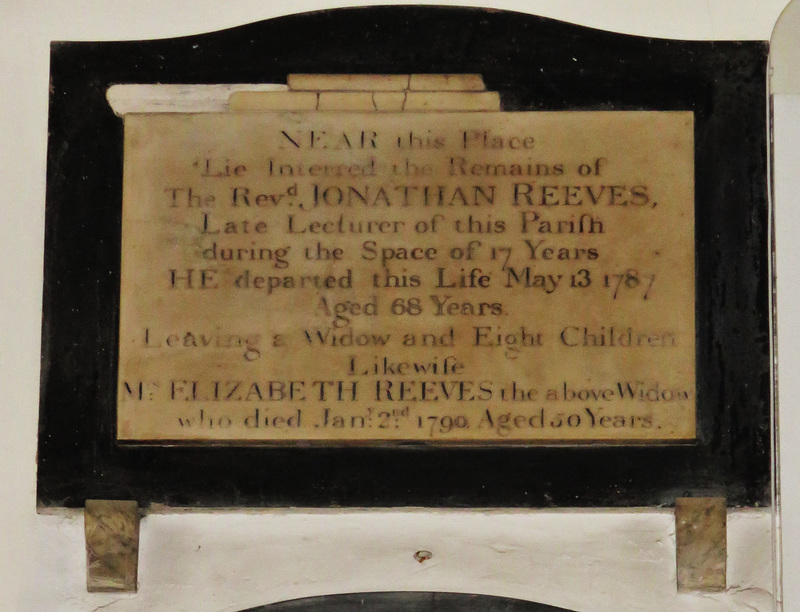 NEAR this Place
Lie Interred the Remains of
The Revd. JONATHAN REEVES,
Late Lecturer of this Pariſh
during the Space of 17 Years
HE departed this Life May 13 1787
Aged 68 Years.
Leaving a Widow and Eight Children
Likewiſe
Mrs ELIZABETH REEVES the above Widow
who died Jany. 2nd 1790. Aged 50 Years.